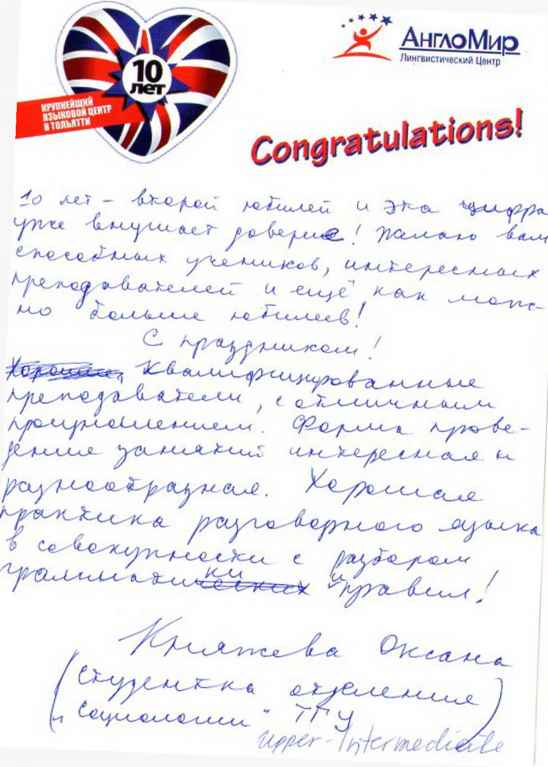 10
лет
КРУПНЕЙШИЙ
ЯЗЫКОВОЙ ЦЕНТР
В ТОЛЬЯТТИ
АнглоМир
Лингвистический Центр
Congratulations!
10 лет - второй юбилей и эта цифра
уже внушает доверие! Желаю вам
способных учеников, интересных
преподавателей и ещё как мож-
но больше юбилеев!
С праздником!
Хорошие, квалифицированные
преподаватели, с отличным
произношением. Форма прове-
дения занятий интересная и
разнообразная. Хорошая
практика разговорного языка
в совокупности с разбором
грамматики и правил!
Княжева Оксана
(студентка отделения
"Социологии" ТГУ)
Upper-Intermediate